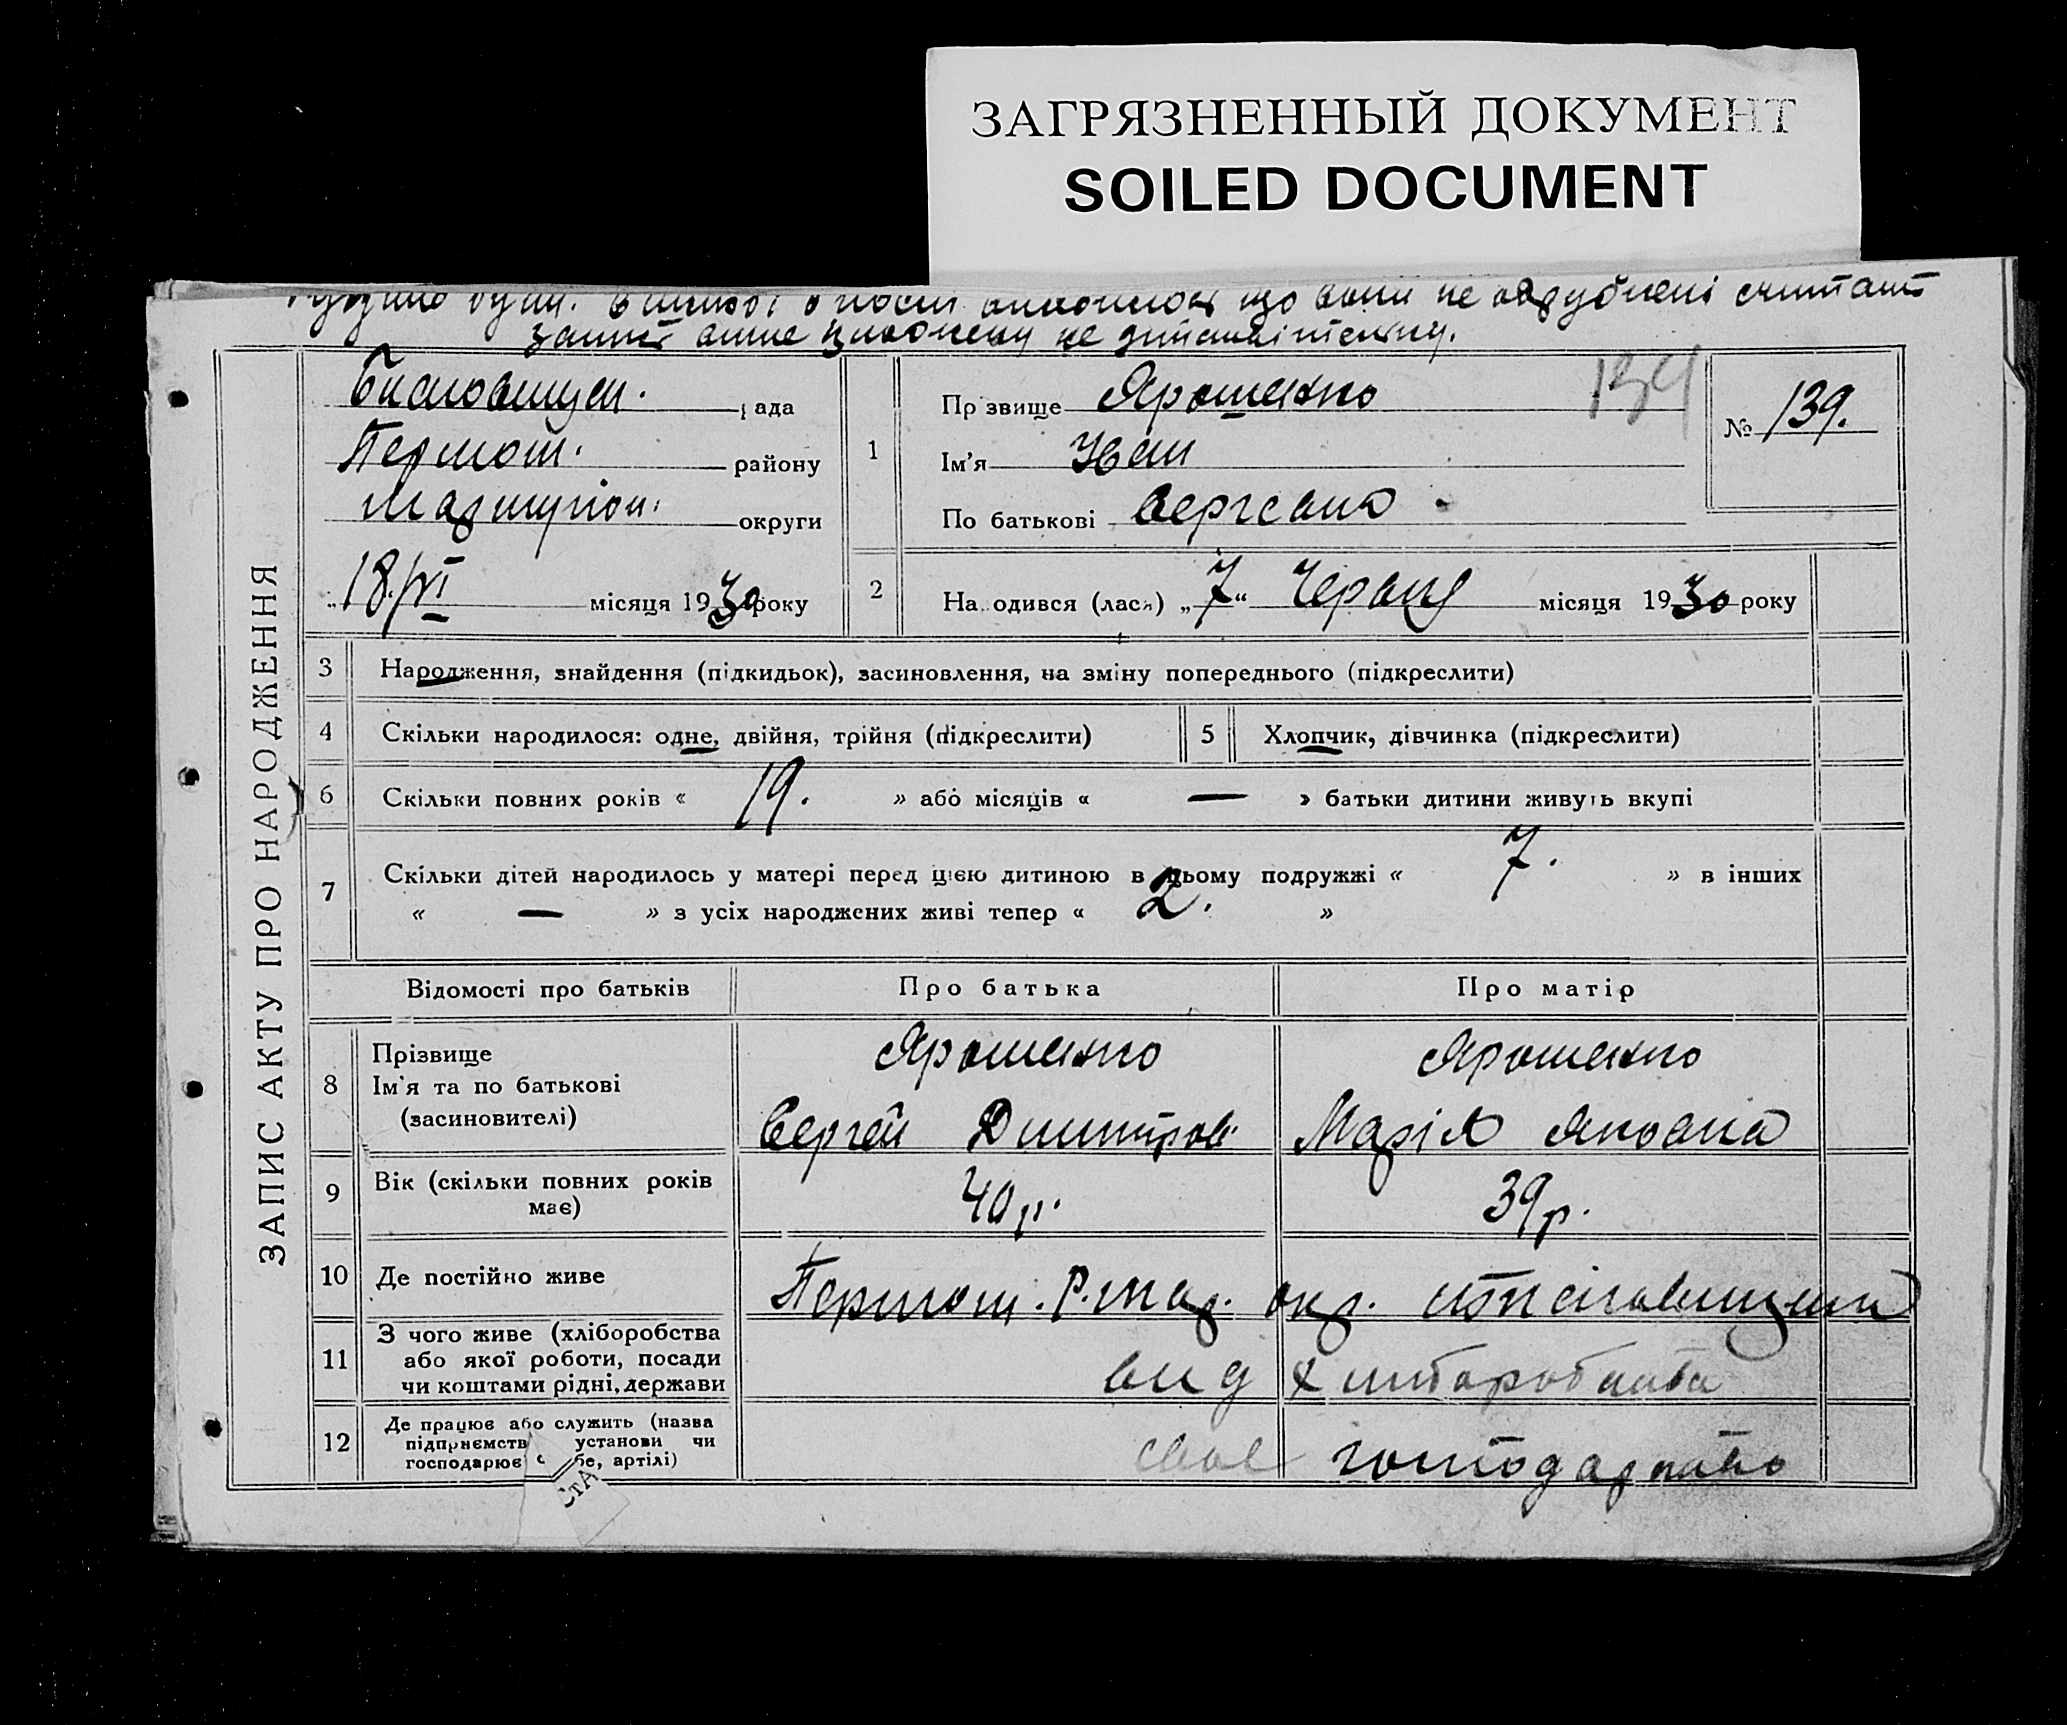 ЗАГРЯЗНЕННЫЙ ДОКУМЕНТ
SOILED DOCUMENT
що вони не
ЗАПИС АКТУ ПРО НАРОДЖЕННЯ
рада
району
округи
18/VI місяця 1930 року
1
Прізвище Ярошенко
134
Ім'я Иван
По батькові Сергеевич
№ 139.
2
Народився (лася) „7“ Червня місяця 1930 року
3 Народження, знайдення (підкидьок), засиновлення, на зміну попереднього (підкреслити)
4 Скільки народилося: одне, двійня, трійня (підкреслити)
5 Хлопчик, дівчинка (підкреслити)
6 Скільки повних років « 19. » або місяців « — » батьки дитини живуть вкупі
7 Скільки дітей народилось у матері перед цією дитиною в цьому подружжі « 7. » в інших
« — » з усіх народжених живі тепер « 2. »
Відомості про батьків
Про батька
Про матір
8
Прізвище
Ім'я та по батькові
(засиновителі)
Ярошенко
Сергей Дмитров.
Ярошенко
Марія Яковна
9
Вік (скільки повних років
має)
40 р.
39 р.
10 Де постійно живе
11
З чого живе (хліборобства
або якої роботи, посади
чи коштами рідні, держави
вид хліборобства
12
Де працює або служить (назва
підприємств установи чи
господарює бе, артілі)
своє господарство
СТА